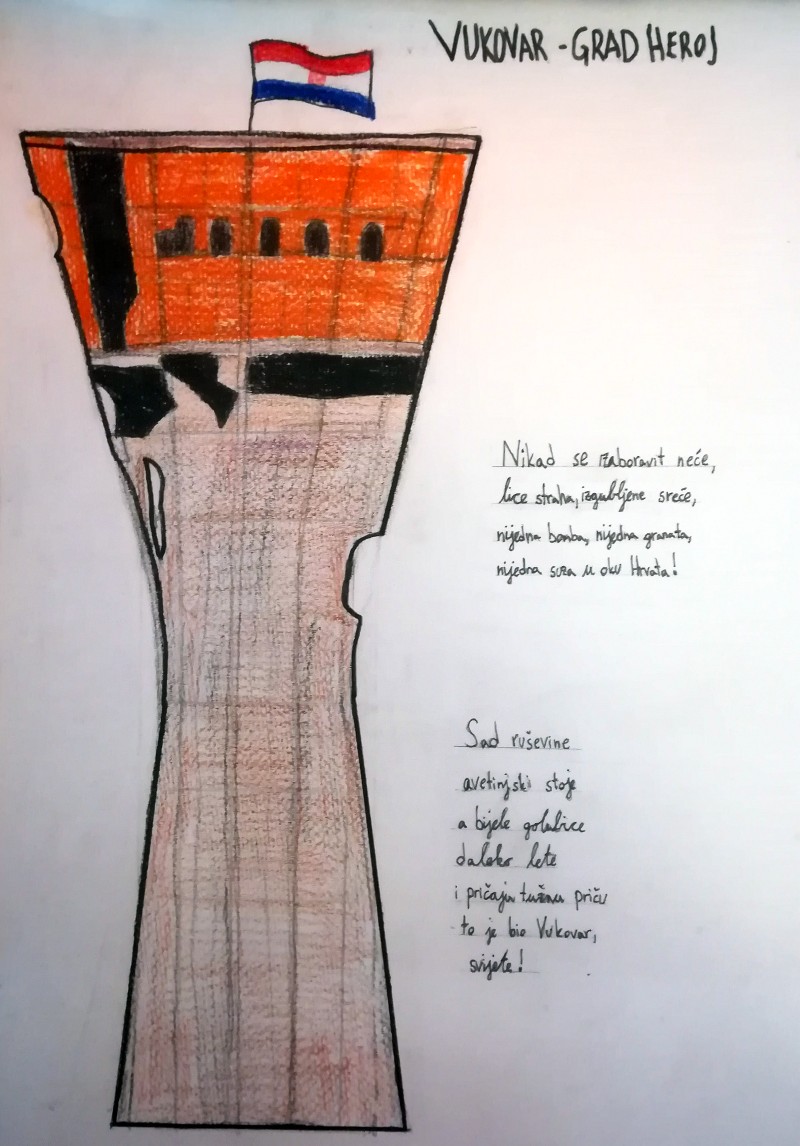 VUKOVAR - GRAD HEROJ
Nikad se zaboravit neće,
lice straha, izgubljene sreće,
nijedna bomba, nijedna granata,
nijedna suza u oku Hrvata!
Sad ruševine
avetinjski stoje
a bijele golubice
daleko lete
i pričaju tužnu priču
to je bio Vukovar,
svijete!